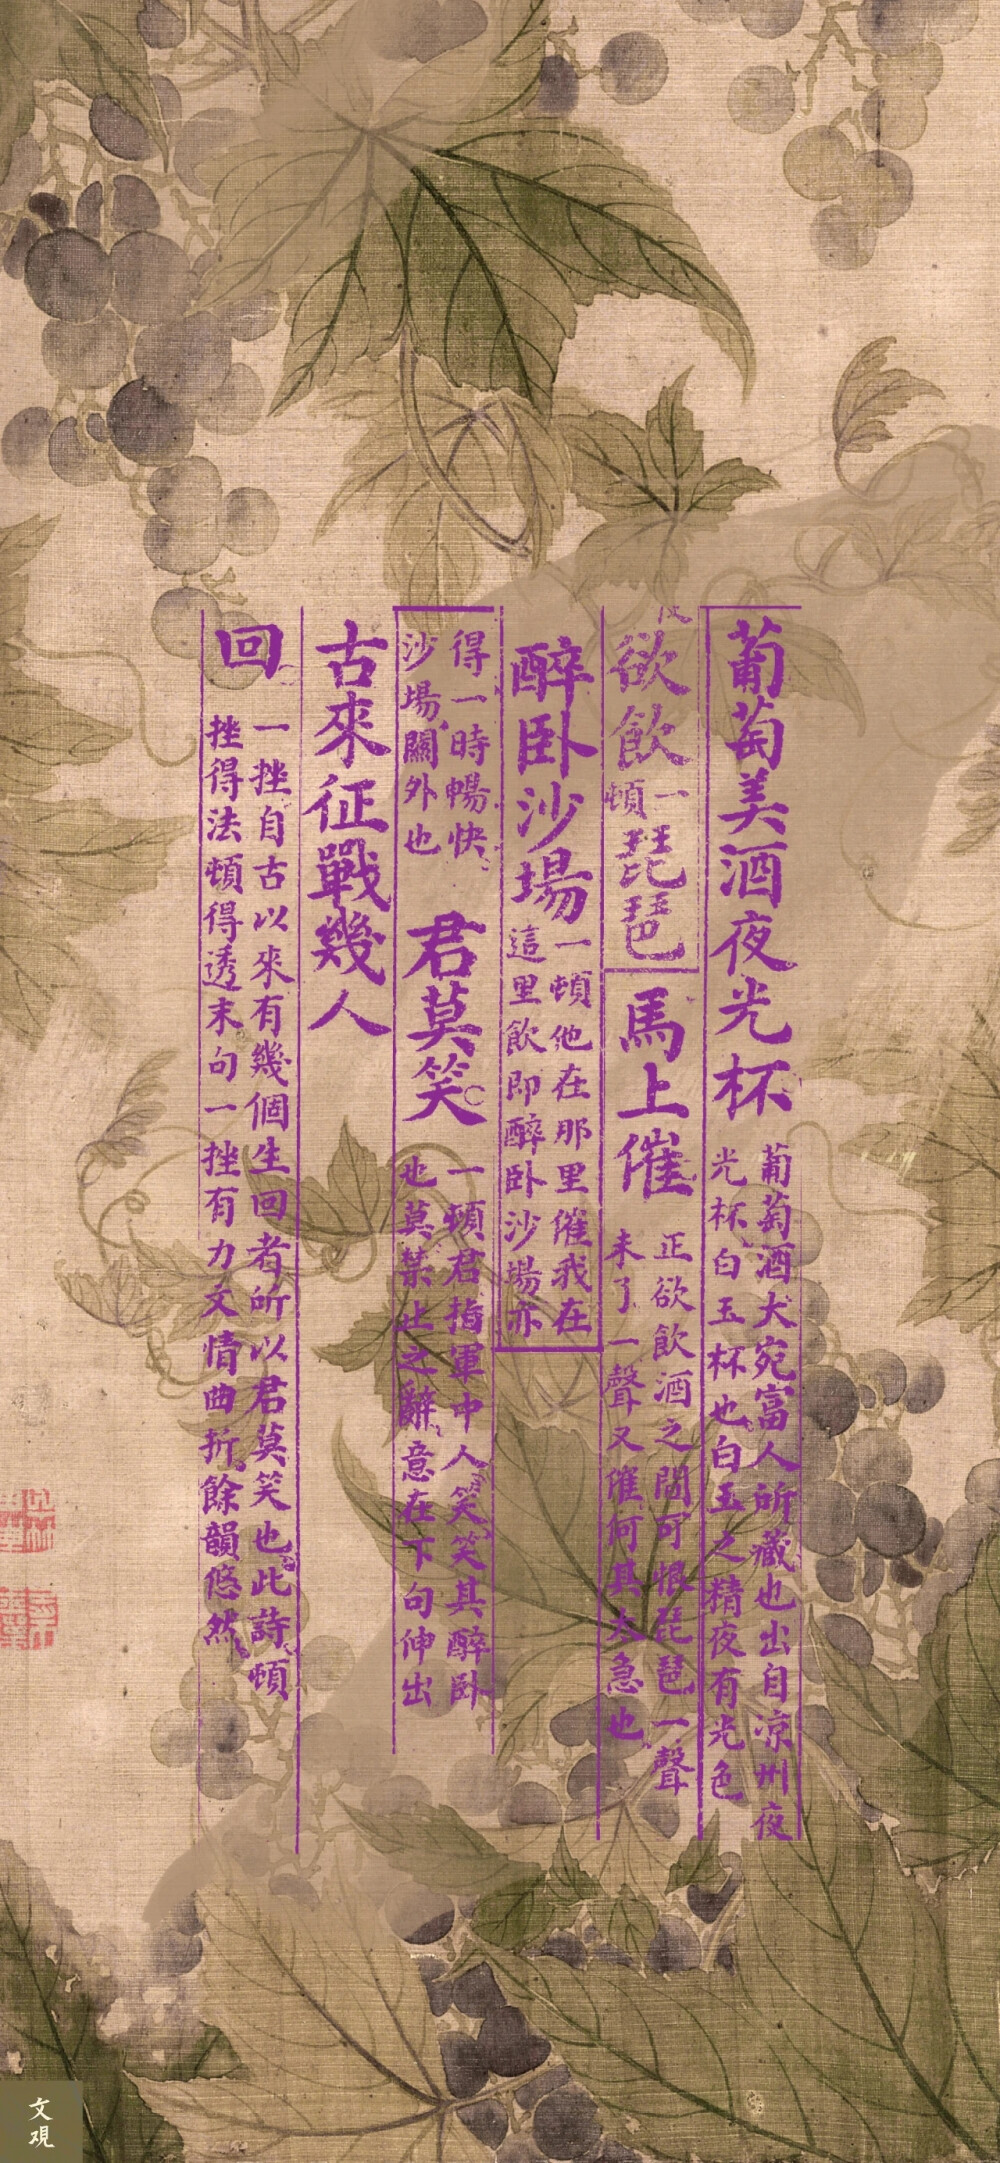 葡萄美酒夜光杯
葡萄酒大宛富人所藏也出自凉州夜
光杯白玉杯也白玉之精夜有光色
欲飲
一
頓
琵琶
馬上催
正欲飲酒之間可恨琵琶一聲
未了一聲又催何其太急也
醉卧沙場
一頓他在那里催我在
這里飲即醉卧沙場亦
得一時暢快
沙場關外也
君莫笑
一頓君指軍中人笑笑其醉卧
也莫禁止之辭意在下句伸出
古來征戰幾人
回
一挫自古以來有幾個生回者所以君莫笑也此詩頓
挫得法頓得透末句一挫有力文情曲折餘韻悠然
文覌